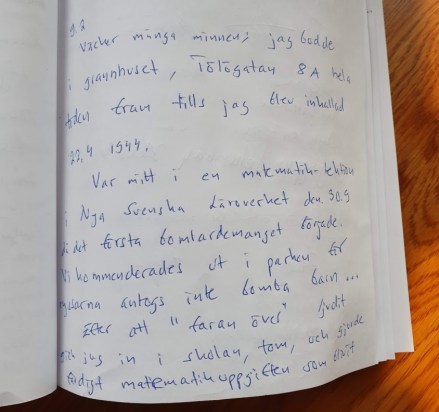 9.8
väcker många minnen; jag bodde
i grannhuset, Tölögatan 8 A hela
tiden fram tills jag blev inkallad
22.4 1944.
Var mitt i en matematik-lektion
i Nya Svenska Läroverket den 30.9
då det första bombardemanget började.
Vi kommenderades ut i parken för
antogs inte bomba barn...
Efter att "faran över" ljudit
gick jag in i skolan, tom, och gjorde
färdigt matematikuppgiften som blivit